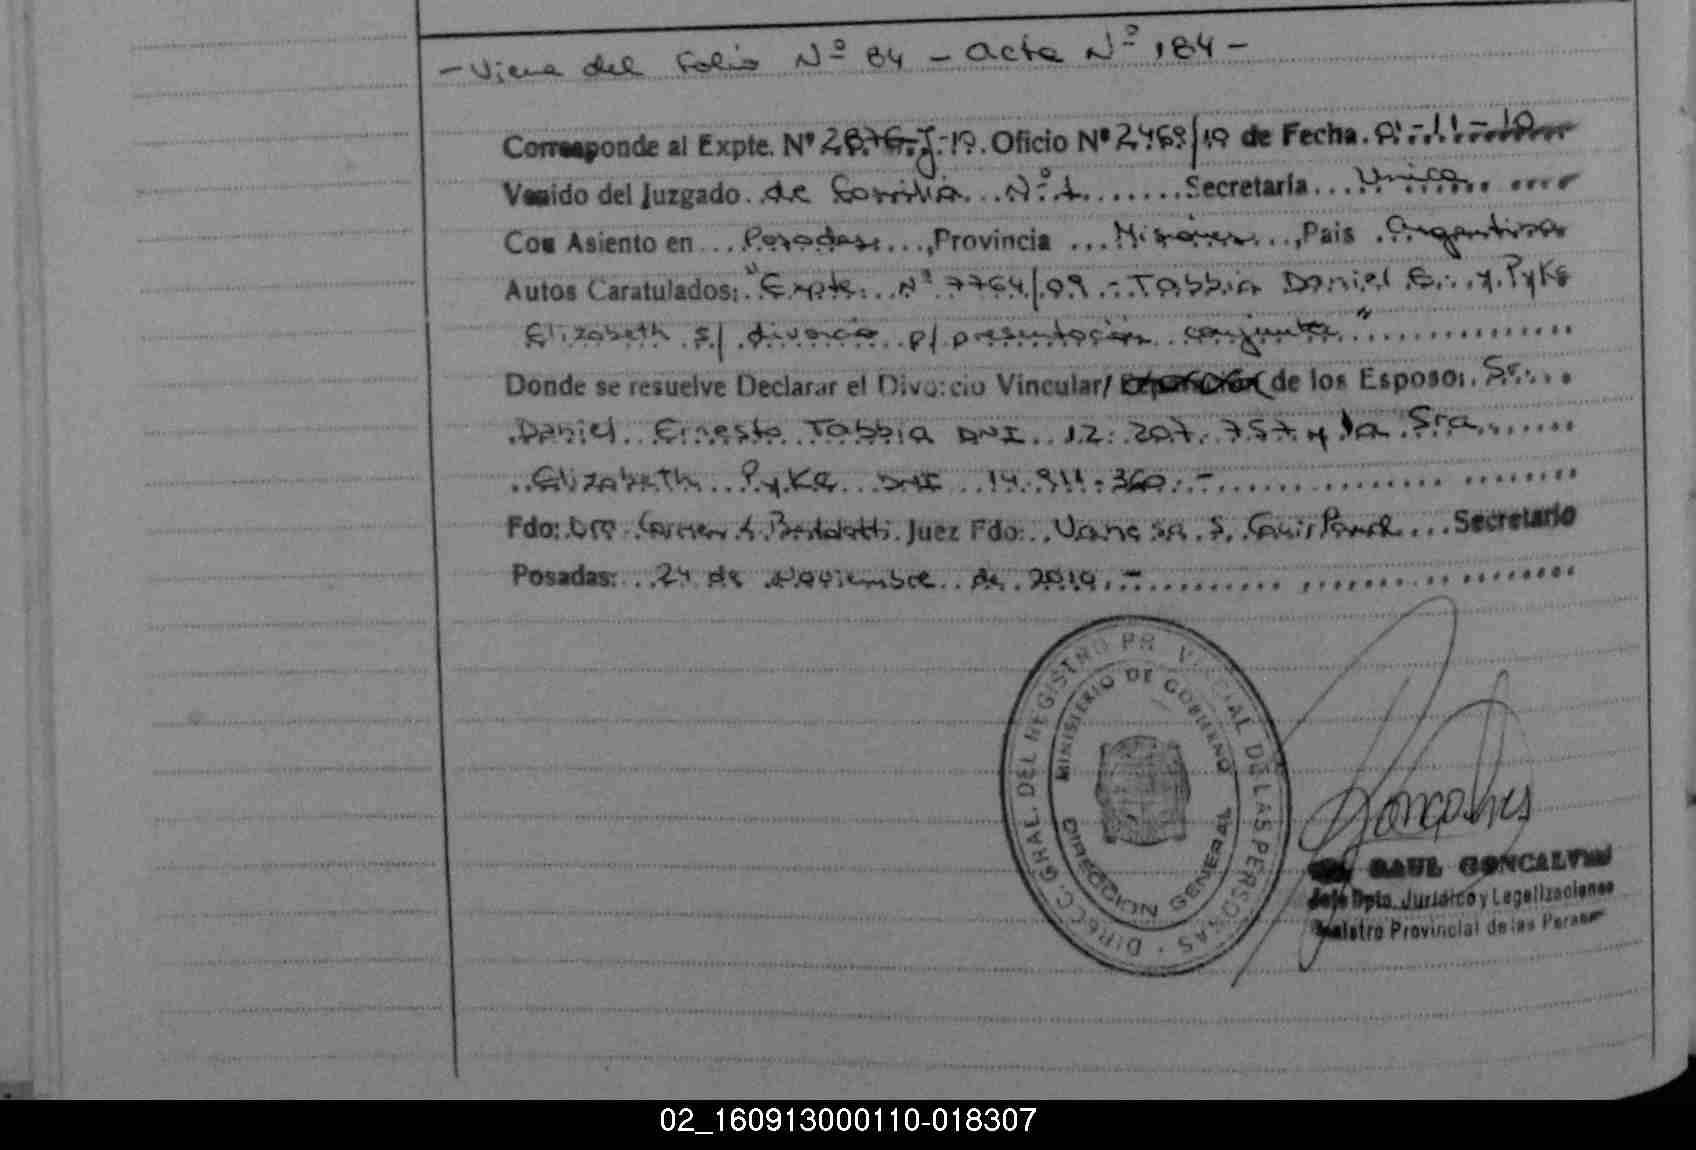 - Viene del Folio Nº 84 - Acta Nº 184 -
Corresponde al Expte. Nº 2876-J-10. Oficio Nº 2469/10 de Fecha. 01-11-10
Venido del Juzgado de Familia Nº 1 Secretaría Unica
Con Asiento en Posadas, Provincia Misiones, Pais Argentina
Autos Caratulados: "Expte. Nº 7764/09 - Tabbia Daniel E. y Pyke
Elizabeth s/ divorcio p/ presentación conjunta"
Donde se resuelve Declarar el Divorcio Vincular/ de los Esposos. Sr.
Daniel Ernesto Tabbia DNI 12.207.757 y la Sra
Elizabeth Pyke DNI 14.911.360.-
Fdo: Dra. Carmen Bertolotti Juez Fdo: Vanesa S. Secretario
Posadas: 24 de Noviembre de 2010.-
DIRECC. GRAL. DEL REGISTRO PROVINCIAL DE LAS PERSONAS
MINISTERIO DE GOBIERNO
DIRECCION GENERAL
Goncalves
RAUL GONCALVES
Jefe Dpto. Jurídico y Legalizaciones
Registro Provincial de las Personas
02_160913000110-018307